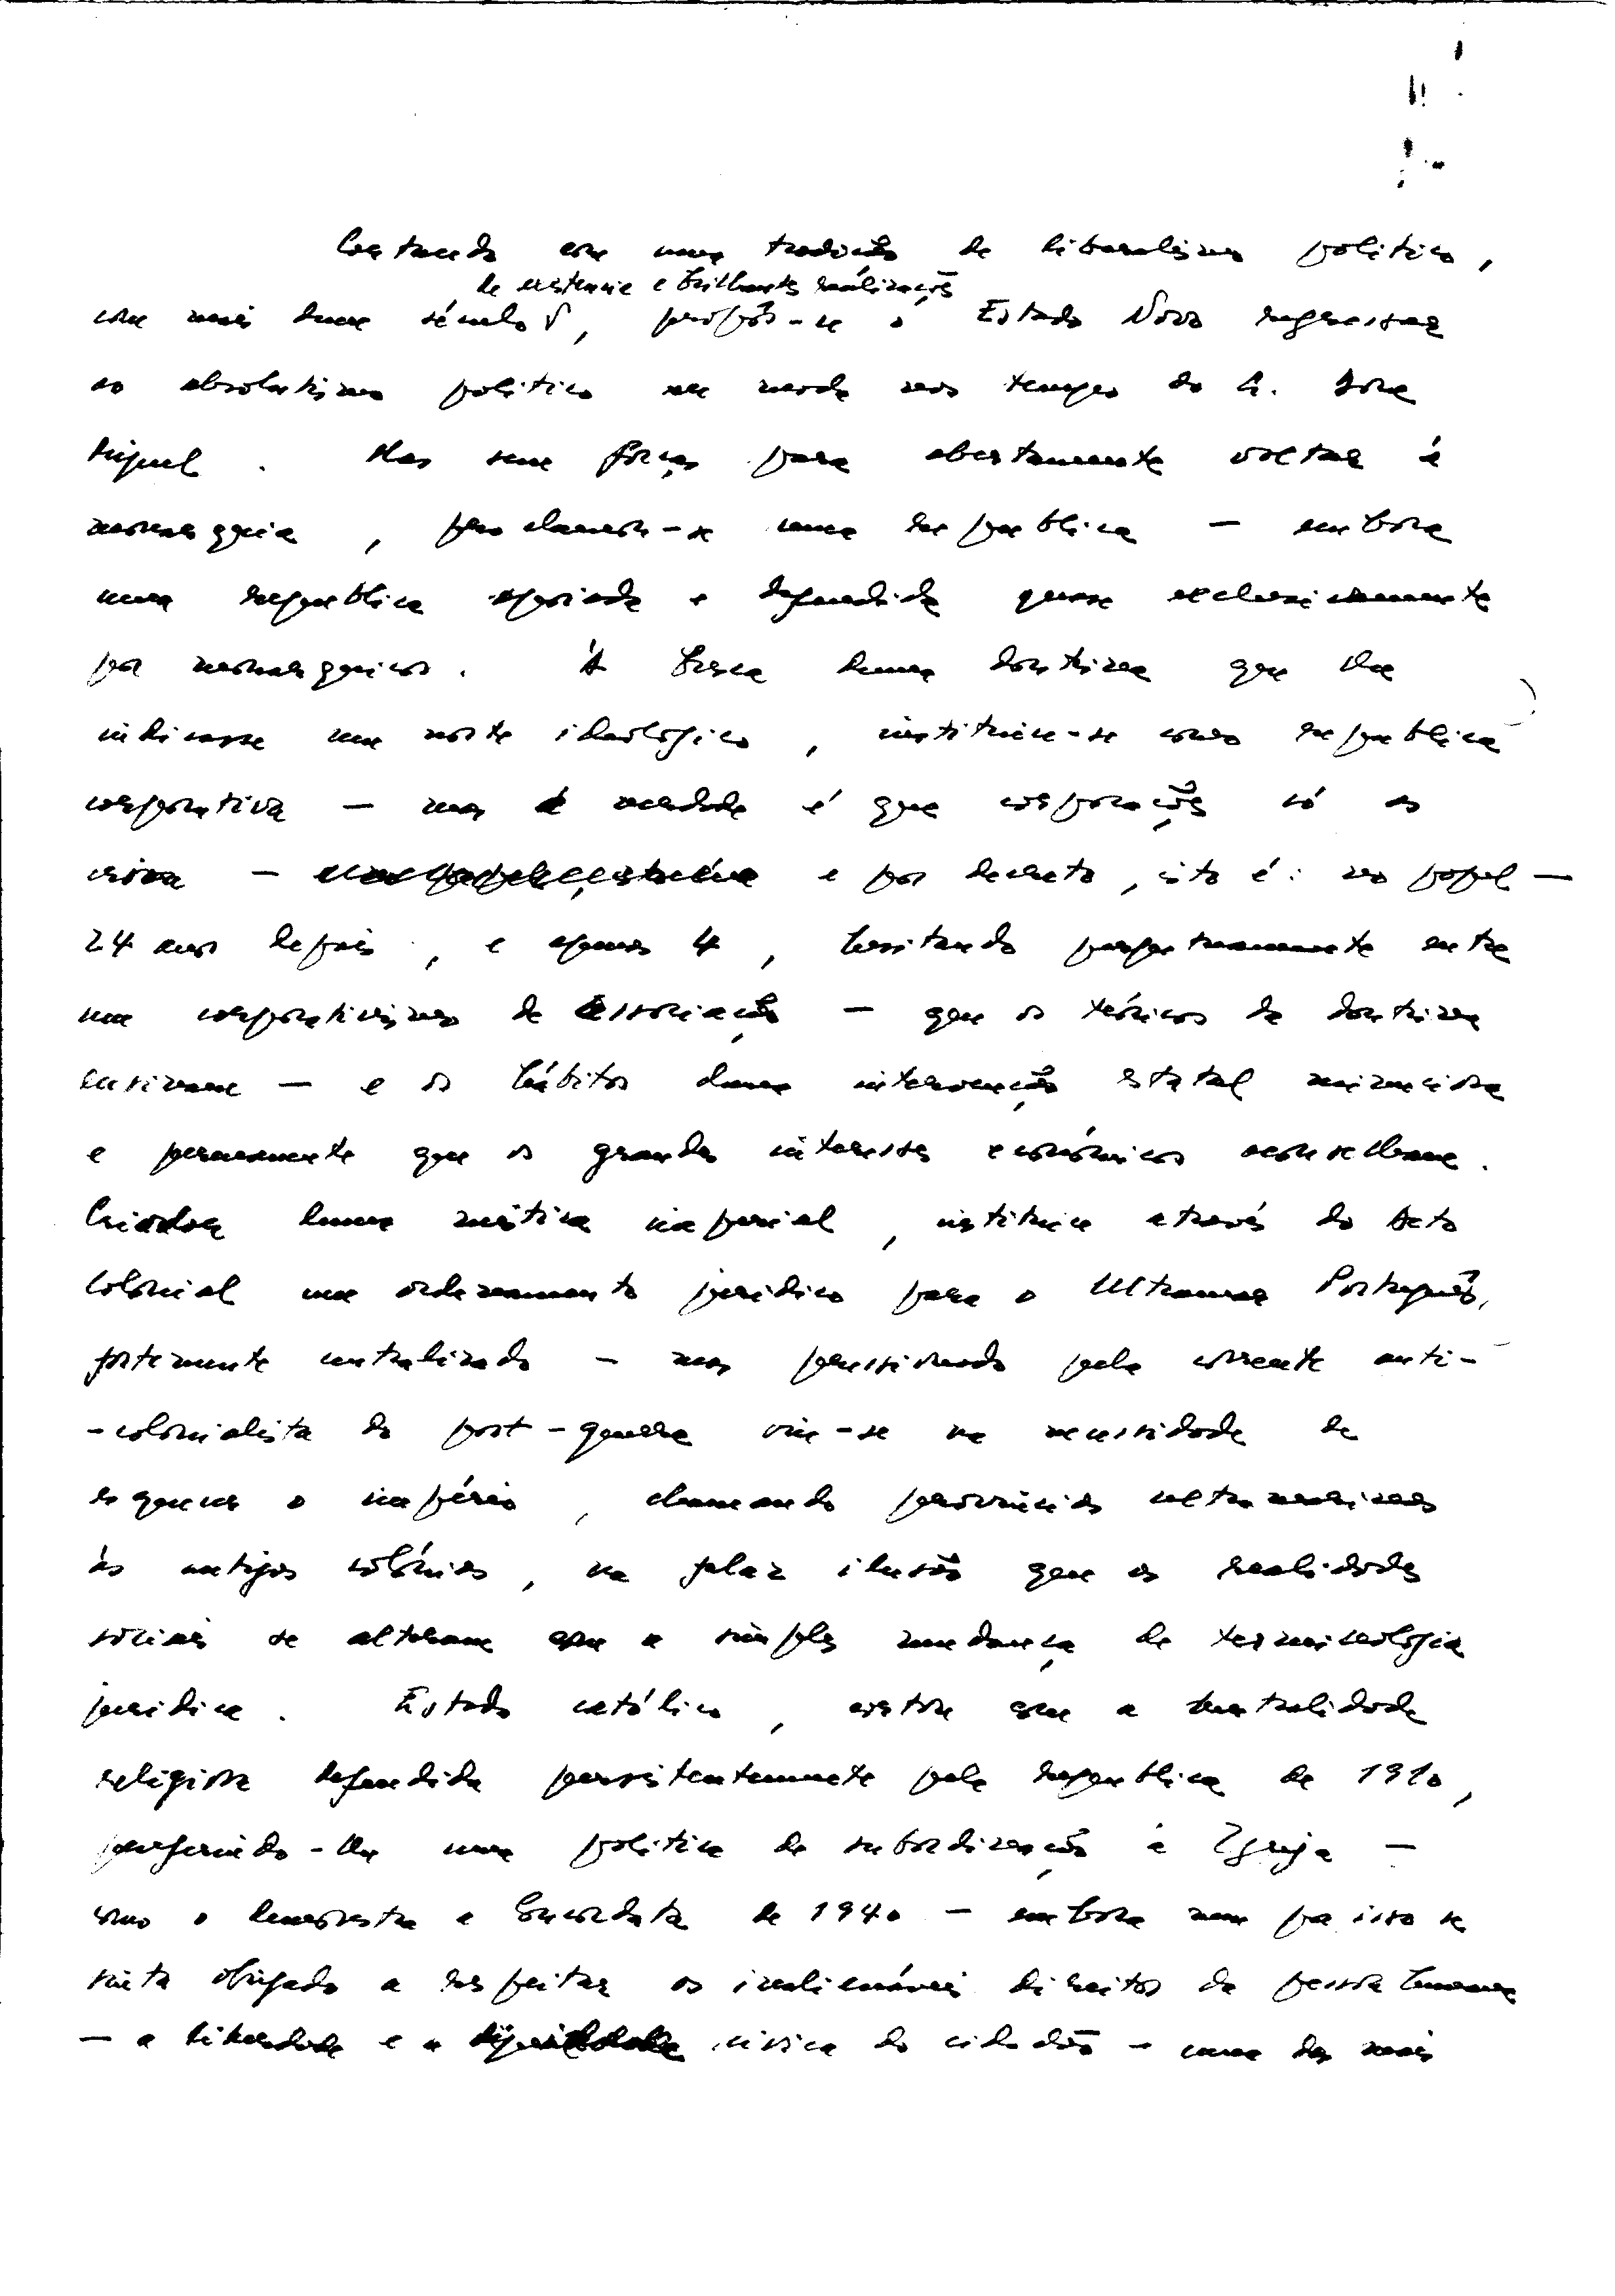 Cortando com uma tradição de liberalismo político,
de existência e brilhantes realizações
com mais duma século, propôs-se o Estado Novo regressar
ao absolutismo político em moda nos tempos do Sr. Dom
Miguel. Mas sem forças para abertamente voltar à
monarquia, proclamou-se uma república — embora
uma república apoiada e defendida quase exclusivamente
por monárquicos. À busca duma doutrina que lhe
indicasse um norte ideológico, instituiu-se como república
corporativa — mas a verdade é que corporações só as
criou — e por decreto, isto é: no papel —
24 anos depois, e apenas 4, hesitando perpetuamente entre
um corporativismo de associação — que os teóricos da doutrina
ensinam — e os hábitos duma intervenção estatal minuciosa
e permanente que os grandes interesses económicos aconselham.
Criador duma mística imperial, instituiu através do Acto
Colonial um ordenamento jurídico para o Ultramar Português,
fortemente centralizado — mas pressionado pela corrente anti-
-colonialista do post-guerra viu-se na necessidade de
esquecer o império, chamando províncias ultramarinas
às antigas colónias, na falaz ilusão que as realidades
sociais se alteram com a simples mudança de terminologia
jurídica. Estado católico, cortou com a neutralidade
religiosa defendida persistentemente pela república de 1910,
preferindo-lhe uma política de subordinação à Igreja —
como o demonstra a Concordata de 1940 — embora nem por isso se
sinta obrigado a respeitar os inalienáveis direitos da pessoa humana
— a liberdade e a dignidade cívica do cidadão — uma das mais